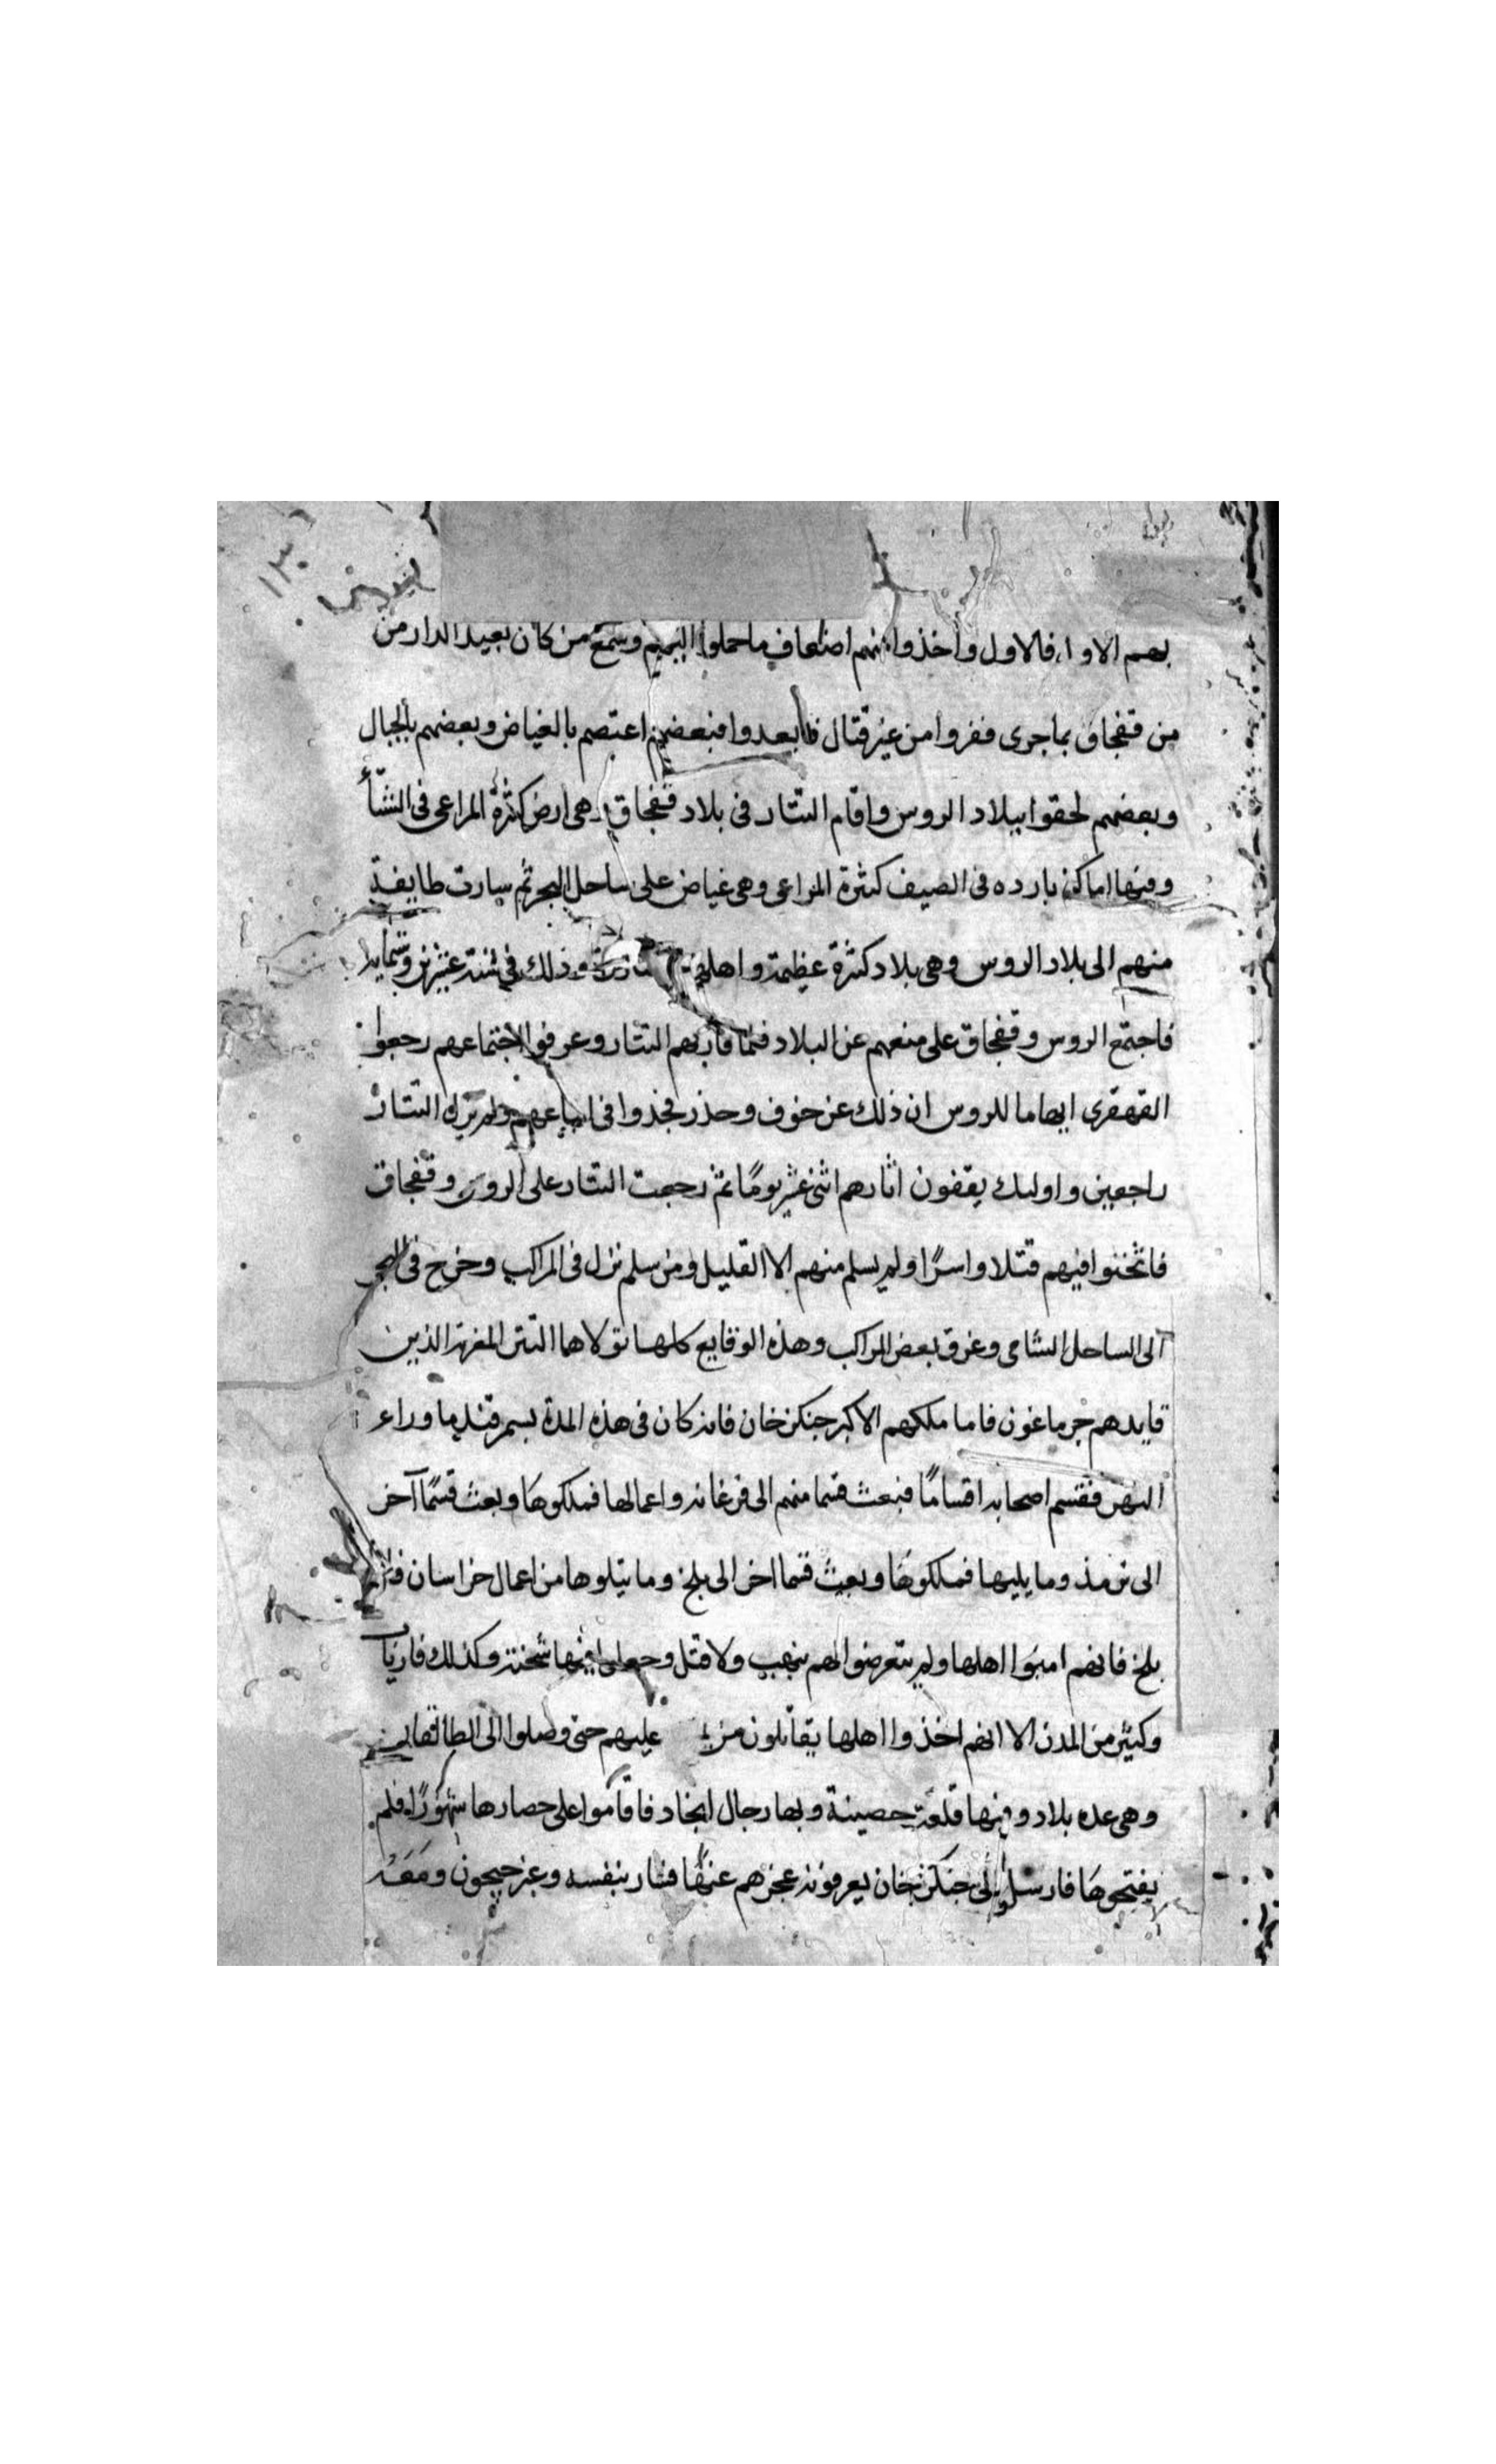 بهم الاول فالاول واخذوا منهم اضعاف ما حملوا اليهم وسمع من كان بعيد الدار من
من قفجاق بما جرى ففروا من غير قتال فابعدوا فبعضهم اعتصم بالغياض وبعضهم بالجبال
وبعضهم لحقوا ببلاد الروس واقام التتار فى بلاد قفجاق وهى ارض كثرة المراعى فى الشتأ
ومنها اماكن بارده فى الصيف كثيرة المراعى وهى غياض على ساحل البحر ثم سارت طايفة
منهم الى بلاد الروس وهى بلاد كثرة عظيمة واهلها وذلك فى سنة عشرين وستماية
فاجتمع الروس وقفجاق على منعهم عن البلاد فلما قاربهم التتار وعرفوا اجتماعهم رجعوا
القهقرى ايهاما للروس ان ذلك عن خوف وحذر فجذوا فى اتباعهم ولم يزل التتار
راجعين واوليك يقفون اثارهم اثنى عشر يومًا ثم رجعت التتار على الروس وقفجاق
فاثخنوا فيهم قتلا واسرًا ولم يسلم منهم الا القليل ومن سلم نزل فى المراكب وخرج فى البحر
الى الساحل الشامى وغرق بعض المراكب وهذه الوقايع كلها تولاها التتر المغربة الذين
قايدهم جرماغون فاما ملكهم الاكبر جنكزخان فانه كان فى هذه المدة بسمرقند ما وراء
النهر فقسم اصحابه اقسامًا فبعث قسما منهم الى فرغانه واعمالها فملكوها وبعث قسمًا آخر
الى ترمذ وما يليها فملكوها وبعث قسما اخر الى بلخ وما يتلوها من اعمال خراسان فاما
بلخ فانهم امنوا اهلها ولم يتعرضوا لهم بنهب ولا قتل وجعلوا فيها شحنة وكذلك فارياب
وكثير من المدن الا انهم اخذوا اهلها يقاتلون من عليهم حتى وصلوا الى الطالقان
وهى عده بلاد وفيها قلعة حصينة وبها رجال انجاد فاقاموا على حصارها شهورًا فلم
يفتحوها فارسلوا الى جنكزخان يعرفونه عجزهم عنها فسار بنفسه وعبر جيحون ومعه